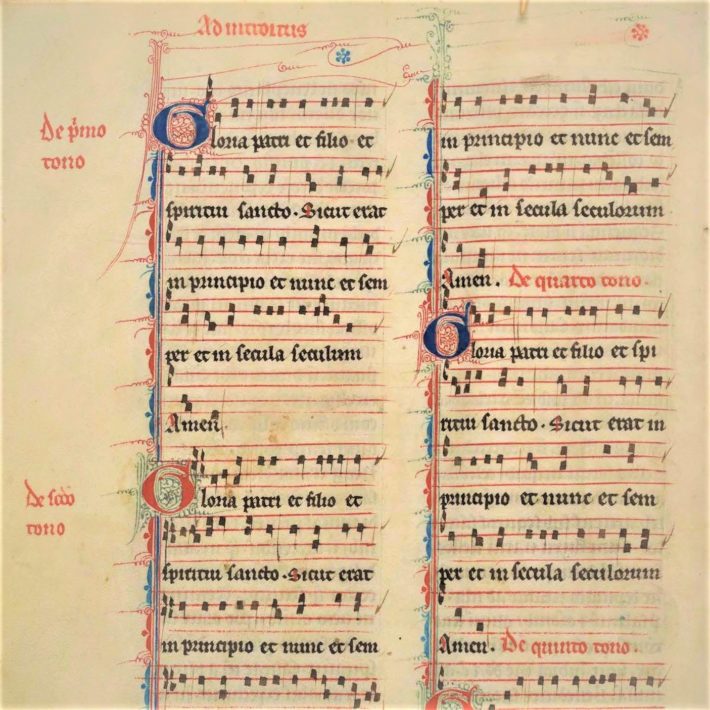 Ad introitus
De p̄mo
tono
Gloria patri et filio et
spiritui sancto. Sicut erat
in principio et nunc et sem
per et in secula seculum
Amen.
De scđo
tono
Gloria patri et filio et
spiritui sancto. Sicut erat
in principio et nunc et sem
in principio et nunc et sem
per et in secula seculorum
Amen. De quarto tono.
Gloria patri et filio et spi
ritui sancto. Sicut erat in
principio et nunc et sem
per et in secula seculorum
Amen. De quinto tono.